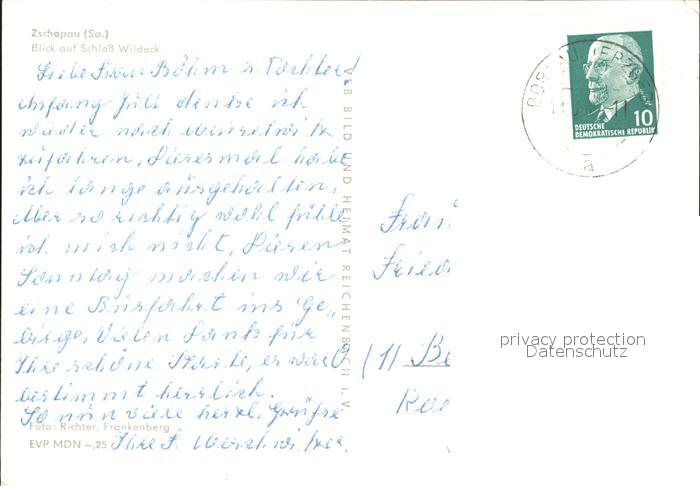 Zschopau (Sa.)
Blick auf Schloß Wildeck
Liebe Frau Böhm u. Tochter!
Anfang Juli denke ich
wieder nach
zufahren. Dieses mal habe
ich lange ausgehalten.
Aber so richtig wohl fühle
ich mich nicht. Diesen
Sonntag machen wir
eine Busfahrt ins Ge-
birge. Vielen Dank für
Ihre schöne Karte, es war
bestimmt herrlich.
So nun viele herzl. Grüße
Foto: Richter, Frankenberg
EVP MDN -,25 Ihre
VEB BILD UND HEIMAT REICHENBACH i. V.
10
DEUTSCHE
DEMOKRATISCHE REPUBLIK
Frau
Fried
(1) Be
privacy protection
Datenschutz